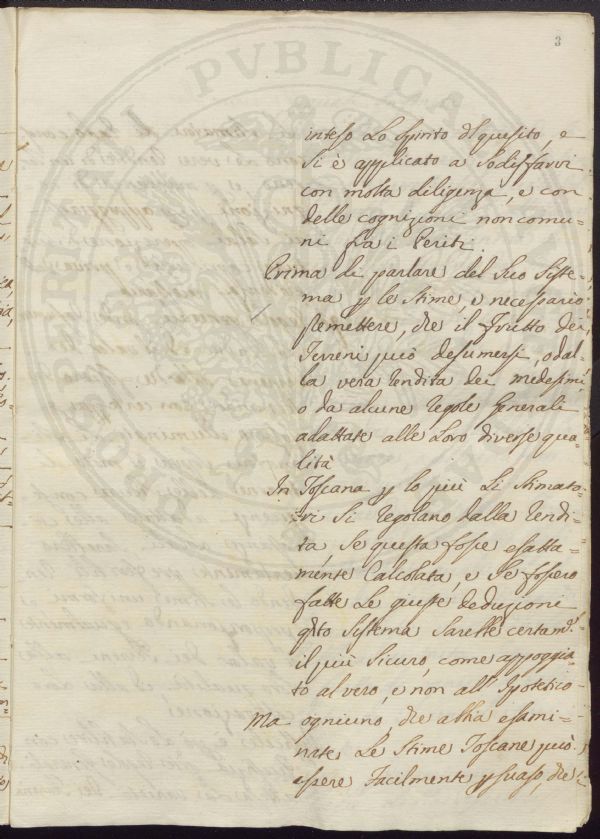 3
inteso Lo Spirito del quesito, e
Si è applicato a Sodisfarvi
con molta diligenza, e con
delle cognizioni non comu=
ni fra i Periti.
Prima di parlare del Suo Siste=
ma p le Stime, e necessario
premettere, che il frutto dei
Terreni può desumersi, o dal=
la vera rendita dei medesimi
o da alcune regole Generali
adattate alle Loro diverse qua
lità
In Toscana p lo più Li Stimato=
ri Si regolano dalla rendi=
ta, Se questa fosse esatta=
mente Calcolata, e Se fossero
fatte Le giuste deduzioni
qsto Sistema Sarebbe certamte.
il più Sicuro, come appoggia=
to al vero, e non all'Ipotetico
Ma ogniuno, che abbia esami=
nate Le Stime Toscane può
essere facilmente psuaso, che
PVBLICA